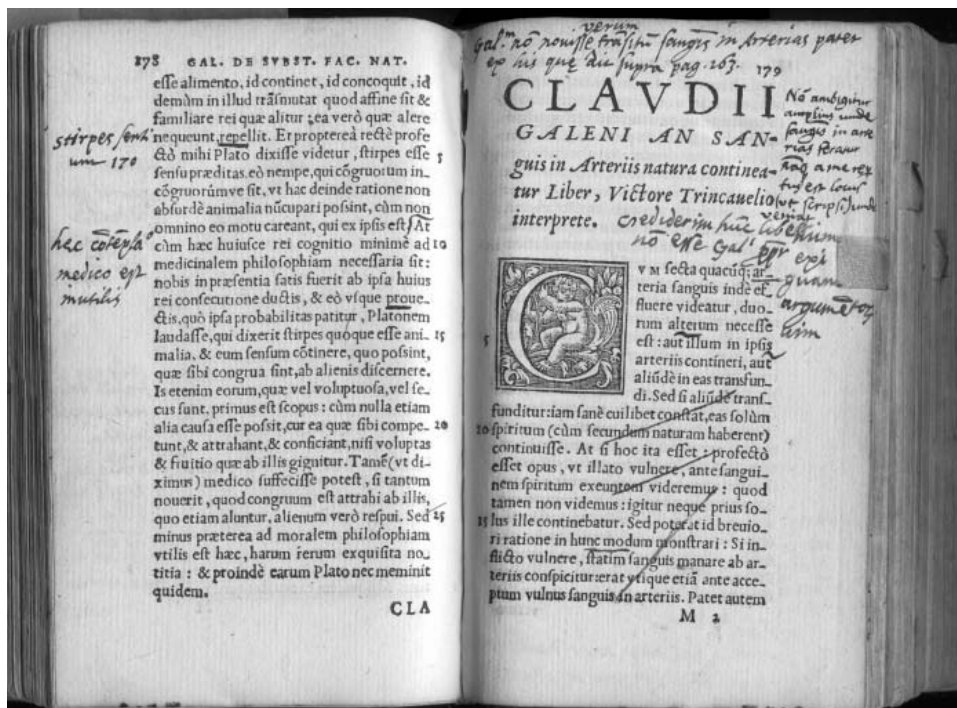 178 GAL. DE SVBST. FAC. NAT.
esse alimento, id continet, id concoquit, id
demùm in illud trãsmutat quod affine sit &
familiare rei quæ alitur: ea verò quæ alere
nequeunt, repellit. Et propterea rectè profe
ctò mihi Plato dixisse videtur, stirpes esse 5
sensu præditas. eò nempe, qui cõgruorum in-
cõgruorúmve sit, vt hac deinde ratione non
absurdè animalia nũcupari possint, cùm non
omnino eo motu careant, qui ex ipsis est. At
cùm hæc huiusce rei cognitio minimè ad 10
medicinalem philosophiam necessaria sit:
nobis in præsentia satis fuerit ab ipsa huius
rei consecutione ductis, & eò vsque proue-
ctis, quò ipsa probabilitas patitur, Platonem
laudasse, qui dixerit stirpes quoque esse ani- 15
malia. & eum sensum cõtinere, quo possint,
quæ sibi congrua sint, ab alienis discernere.
Is etenim eorum, quæ vel voluptuosa, vel se-
cus sunt, primus est scopus: cùm nulla etiam
alia causa esse possit, cur ea quæ sibi compe- 20
tunt, & attrahant, & conficiant, nisi voluptas
& fruitio quæ ab illis gignitur. Tamẽ (vt di-
ximus) medico suffecisse potest, si tantum
nouerit, quod congruum est attrahi ab illis,
quo etiam aluntur, alienum verò respui. Sed 25
minus præterea ad moralem philosophiam
vtilis est hæc, harum rerum exquisita no-
titia: & proindè earum Plato nec meminit
quidem.
CLA
stirpes senti
um 170
hec cõtẽpla°
medico est
inutilis
verum
Gal.^m nõ novisse trãsitũ sangis in Arterias patet
ex iis quę supra pag. 163.
179
CLAVDII
GALENI AN SAN-
guis in Arteriis natura continea-
tur Liber, Victore Trincauelio
interprete.
Nõ ambigitur
amplius unde
sangis in arte
rias feratur
locus
scripsi) unde
veniat
crediderim hũc libellum
nõ esse Gal^i
exi
guam
argumẽtor
CVM secta quacúq; ar-
teria sanguis inde ef-
fluere videatur, duo-
rum alterum necesse
est: aut illum in ipsis 5
arteriis contineri, aut
aliũdè in eas transfun-
di. Sed si aliũdè trans-
funditur: iam sanè cuilibet constat, eas solùm
spiritum (cùm secundum naturam haberent) 10
continuisse. At si hoc ita esset: profectò
esset opus, vt illato vulnere, ante sangui-
nem spiritum exeuntem videremus: quod
tamen non videmus: igitur neque prius so-
lus ille continebatur. Sed poterat id breuio- 15
ri ratione in hunc modum monstrari: Si in-
flicto vulnere, statim sanguis manare ab ar-
teriis conspicitur: erat vtique etiã ante acce-
ptum vulnus sanguis in arteriis. Patet autem
M 2